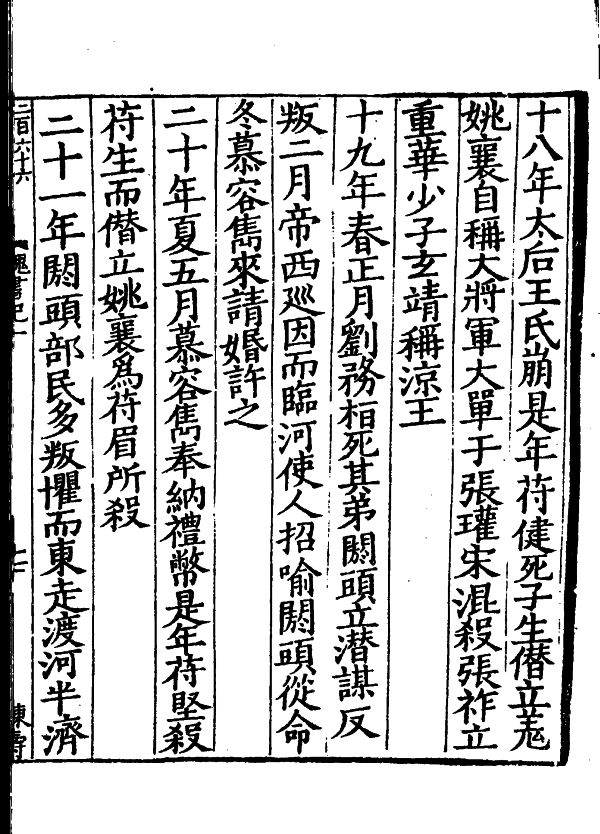 十八年太后王氏崩是年苻健死子生僣立羗
姚襄自稱大將軍大單于張瓘宋混殺張祚立
重華少子玄靖稱涼王
十九年春正月劉務桓死其弟閼頭立潜謀反
叛二月帝西廵因而臨河使人招喻閼頭從命
冬慕容雋來請婚許之
二十年夏五月慕容雋奉納禮幣是年苻堅殺
苻生而僣立姚襄爲苻眉所殺
二十一年閼頭部民多叛懼而東走渡河半濟
二百六十六
魏書紀一
七